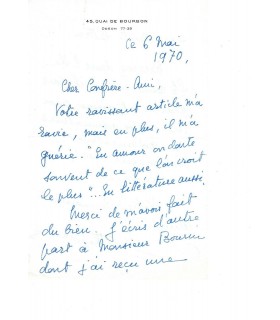 45, QUAI DE BOURBON
Odéon 77-36
ce 6 Mai
1970,
Cher Confrère-Ami,
Votre ravissant article m'a
ravie, mais en plus, il m'a
guérie. "En amour on doute
souvent de ce que l'on croit
le plus"... En littérature aussi.
Merci de m'avoir fait
du bien. J'écris d'autre
part à Monsieur
dont j'ai reçu une